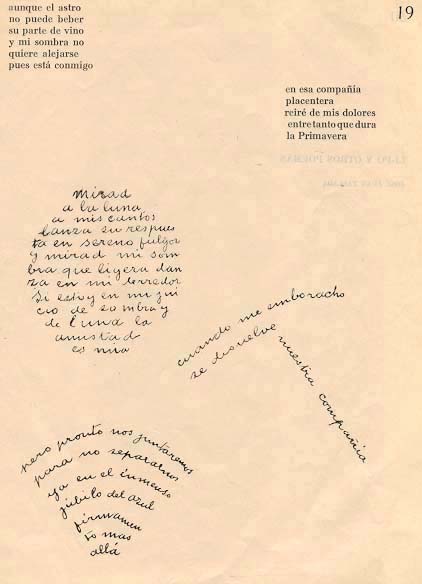 19
aunque el astro
no puede beber
su parte de vino
y mi sombra no
quiere alejarse
pues está conmigo
en esa compañia
placentera
reiré de mis dolores
entretanto que dura
la Primavera
LI-PO Y OTROS POEMAS
JOSÉ JUAN TABLADA
mirad
a la luna
a mis cantos
lanza su respues
ta en sereno fulgor
y mirad mi som
bra que ligera dan
za en mi derredor
si estoy en mi jui
cio de sombra y
de luna la
amistad
es mia
cuando me emboracho
se disuelve
nuestra compañia
pero pronto nos juntaremos
para no separarnos
ya en el inmenso
jubilo del azul
firmamen
to mas
allá